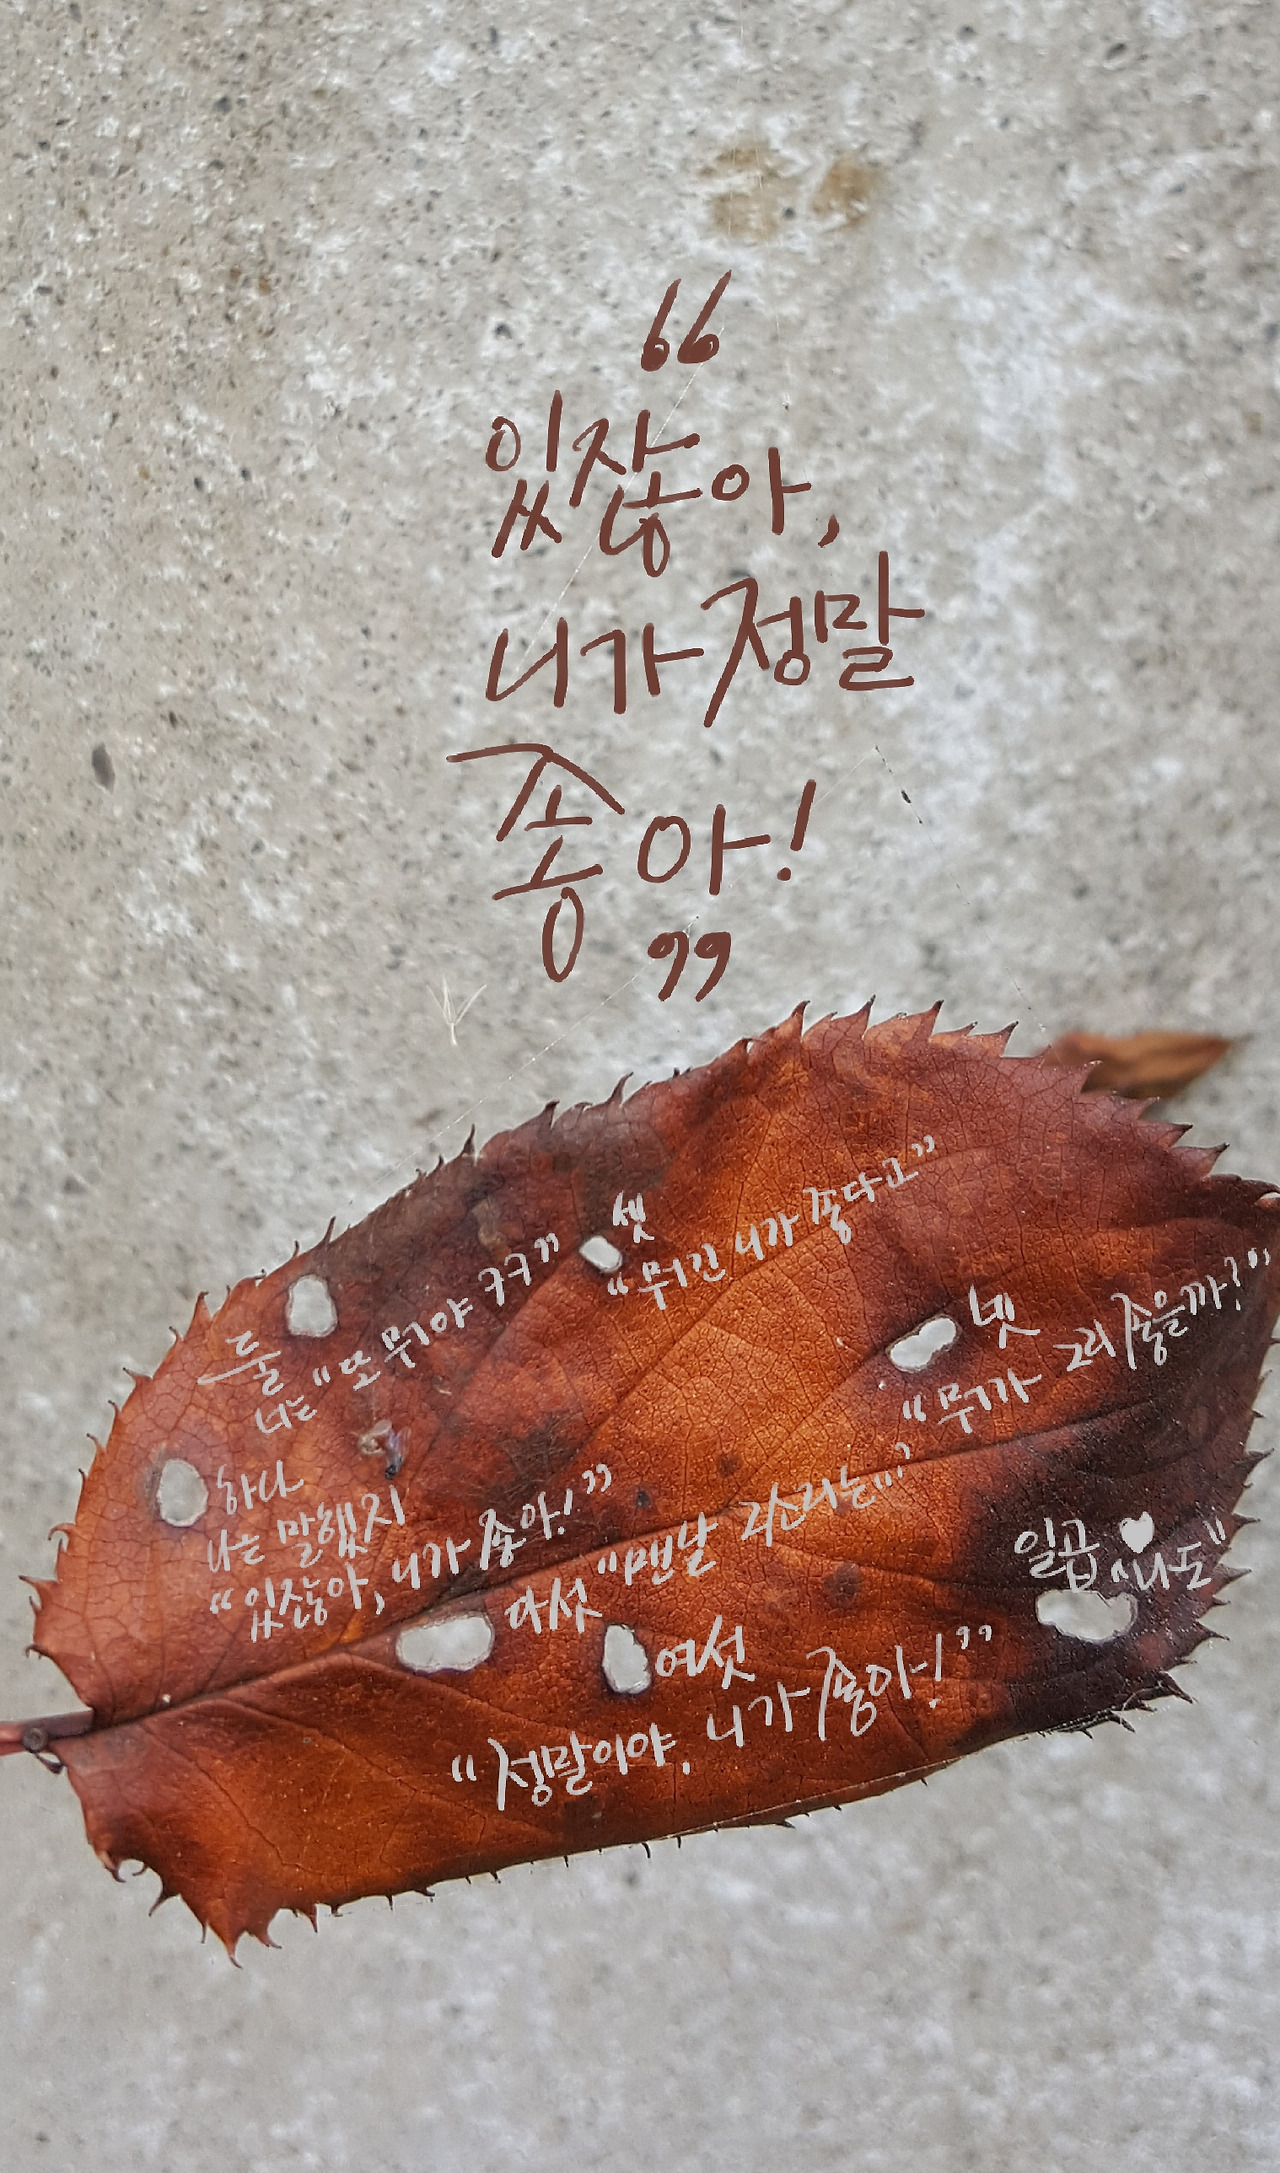 “
있잖아,
니가 정말
좋아!
”
하나
나는 말했지
“있잖아, 니가 좋아!”
둘
너는 “또 뭐야 ㅋㅋ”
셋
“뭐긴 니가 좋다고”
넷
“뭐가 그리 좋을까?”
다섯 “맨날 그 소리는...”
여섯
“정말이야, 니가 좋아!”
일곱 ♥
“나도”